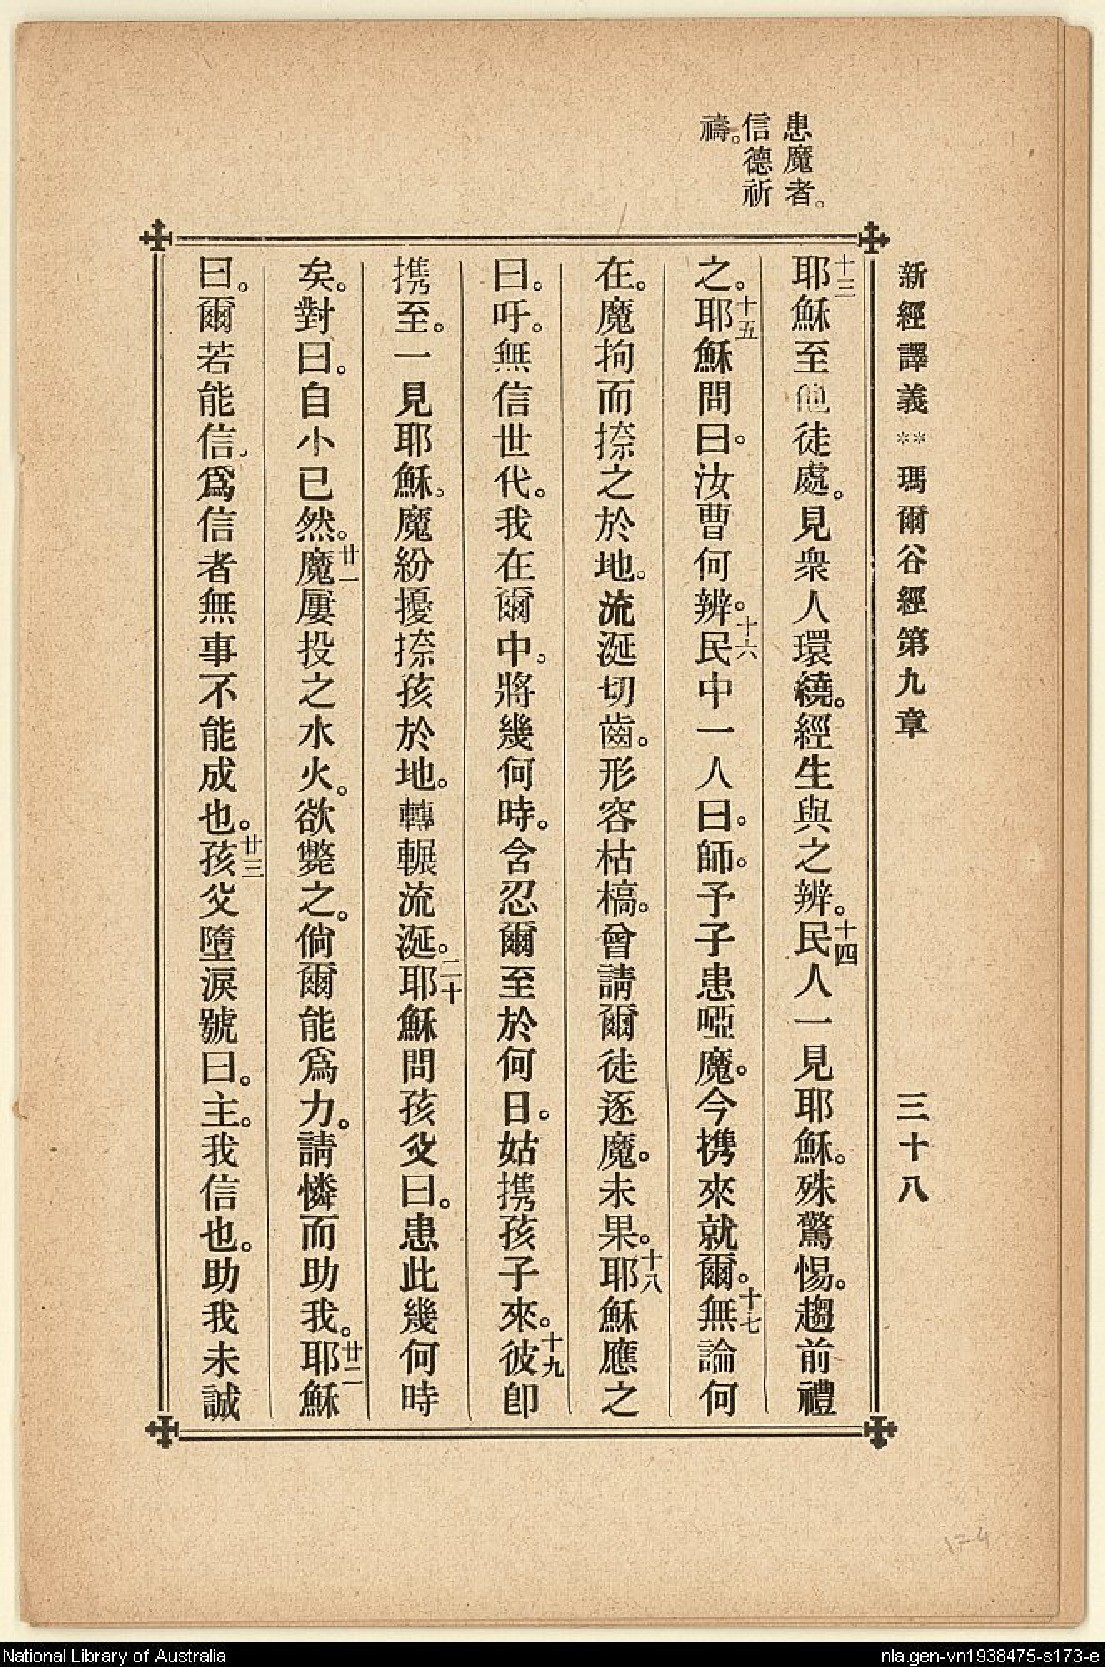 新經譯義**瑪爾谷經第九章 三十八
患魔者。
信德祈
禱。
十三耶穌至他徒處。見衆人環繞。經生與之辨。十四民人一見耶穌。殊驚惕。趨前禮
之。十五耶穌問曰。汝曹何辨。十六民中一人曰。師。予子患啞魔。今携來就爾。十七無論何
在。魔拘而捺之於地。流涎切齒。形容枯槁。曾請爾徒逐魔。未果。十八耶穌應之
曰。吁。無信世代。我在爾中。將幾何時。含忍爾至於何日。姑携孩子來。十九彼卽
携至。一見耶穌。魔紛擾捺孩於地。轉輾流涎。二十耶穌問孩父曰。患此幾何時
矣。對曰。自小已然。廿一魔屢投之水火。欲斃之。倘爾能爲力。請憐而助我。廿二耶穌
曰。爾若能信。爲信者無事不能成也。廿三孩父墮淚號曰。主。我信也。助我未誠
174
National Library of Australia
nla.gen-vn1938475-s173-e